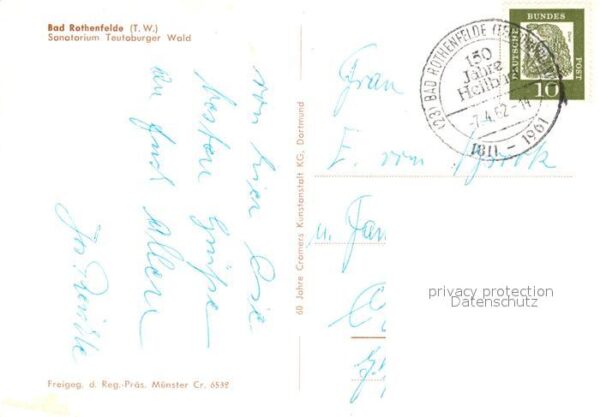 Bad Rothenfelde (T. W.)
Sanatorium Teutoburger Wald
von hier die
besten Grüße
an Euch Allen
60 Jahre Cramers Kunstanstalt KG, Dortmund
DEUTSCHE BUNDES POST
10
(23) BAD ROTHENFELDE
150
Jahre
Heilb
-7.4.62-14
1811 - 1961
Frau
E. von
u. Fam
privacy protection
Datenschutz
Freigeg. d. Reg.-Präs. Münster Cr. 6532